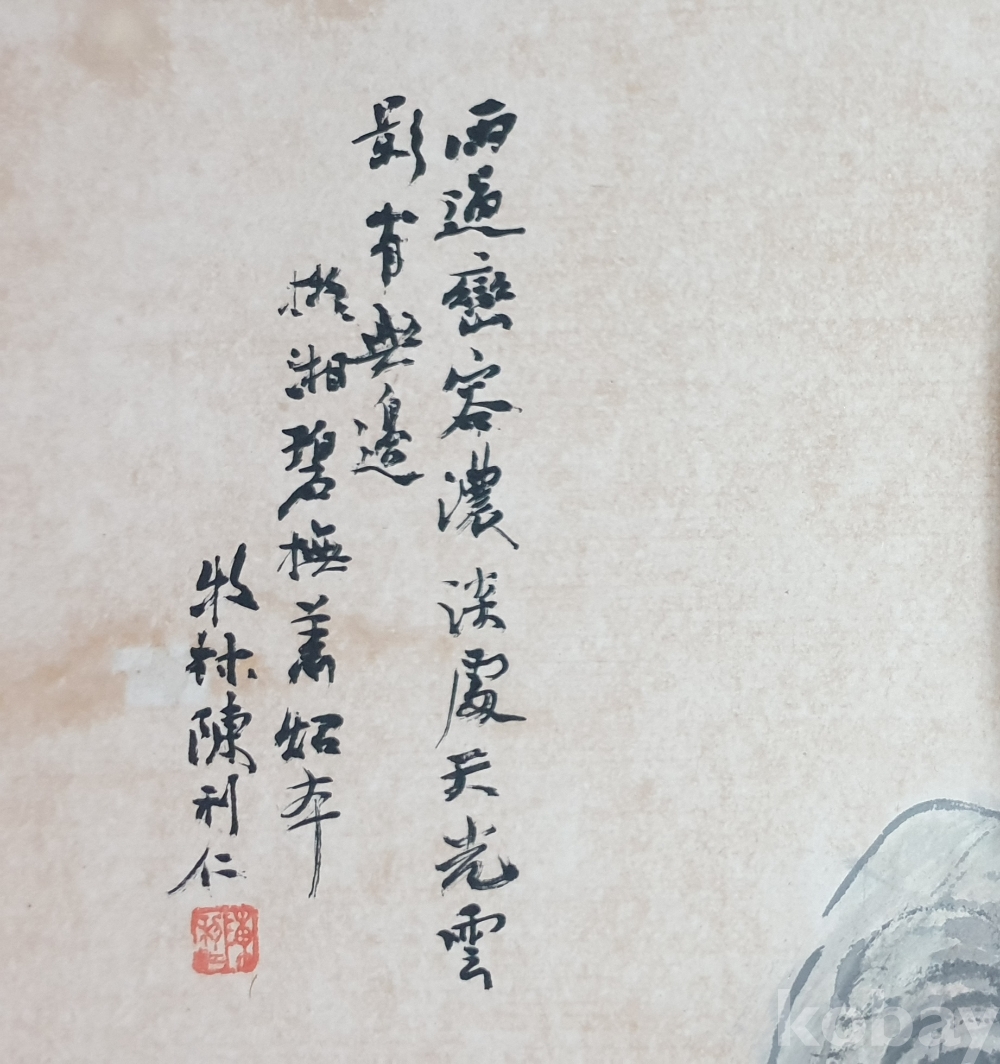 雨過巒容濃淡處天光雲
影有無邊
擬湘碧撫蕭照本
牧林陳利仁
kobay